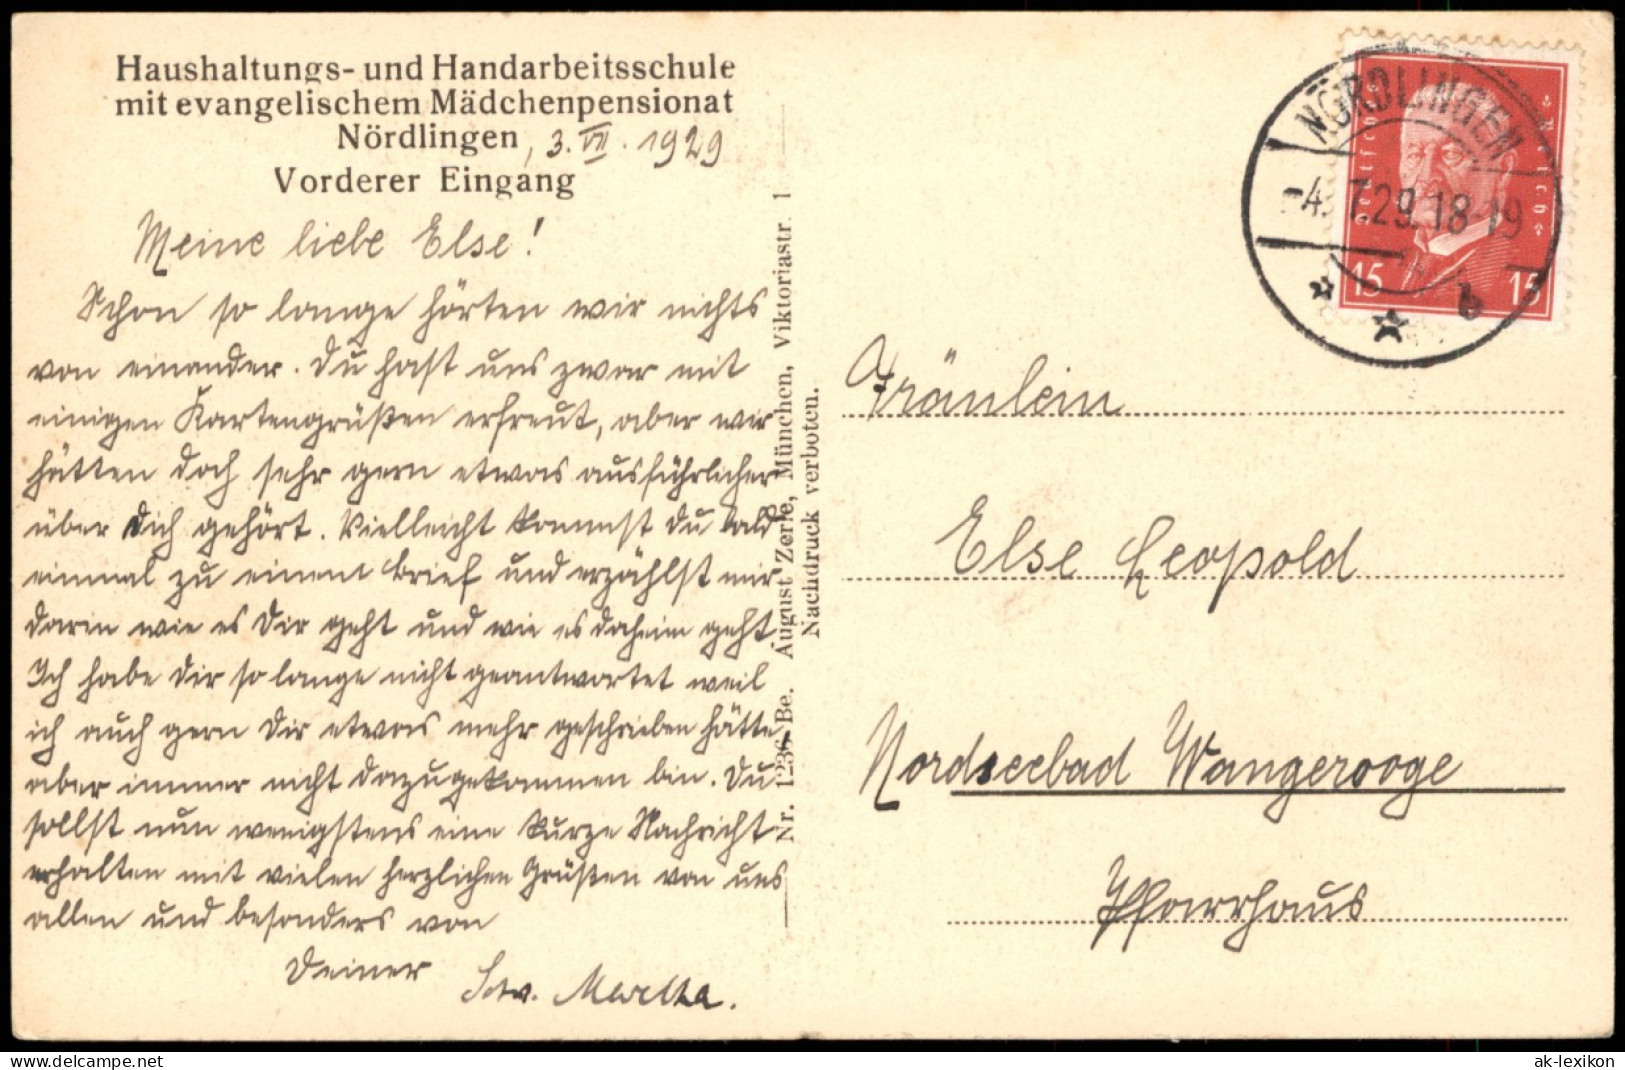 Haushaltungs- und Handarbeitsschule
mit evangelischem Mädchenpensionat
Nördlingen, 3. VII. 1929
Vorderer Eingang
Meine liebe Else!
Schon so lange hörten wir nichts
von einander. Du hast uns zwar mit
einigen Kartengrüßen erfreut, aber wir
hätten doch sehr gern etwas ausführlicher
über Dich gehört. Vielleicht kommst Du bald
einmal zu einem Brief und erzählst mir
darin wie es Dir geht und wie es daheim geht
Ich habe Dir so lange nicht geantwortet weil
ich auch gern Dir etwas mehr geschrieben hätte
aber immer nicht dazugekommen bin. Du
sollst nun wenigstens eine kurze Nachricht
erhalten mit vielen herzlichen Grüßen von uns
allen und besonders von
Deiner Schw. Martha.
Nr. 1236 Be. August Zerle, München, Viktoriastr. 1
Nachdruck verboten.
NÖRDLINGEN
-4.7.29.18-19
* * * b
Deutsches Reich
15 15
Fräulein
Else Leopold
Nordseebad Wangerooge
Pfarrhaus
www.delcampe.net
ak-lexikon